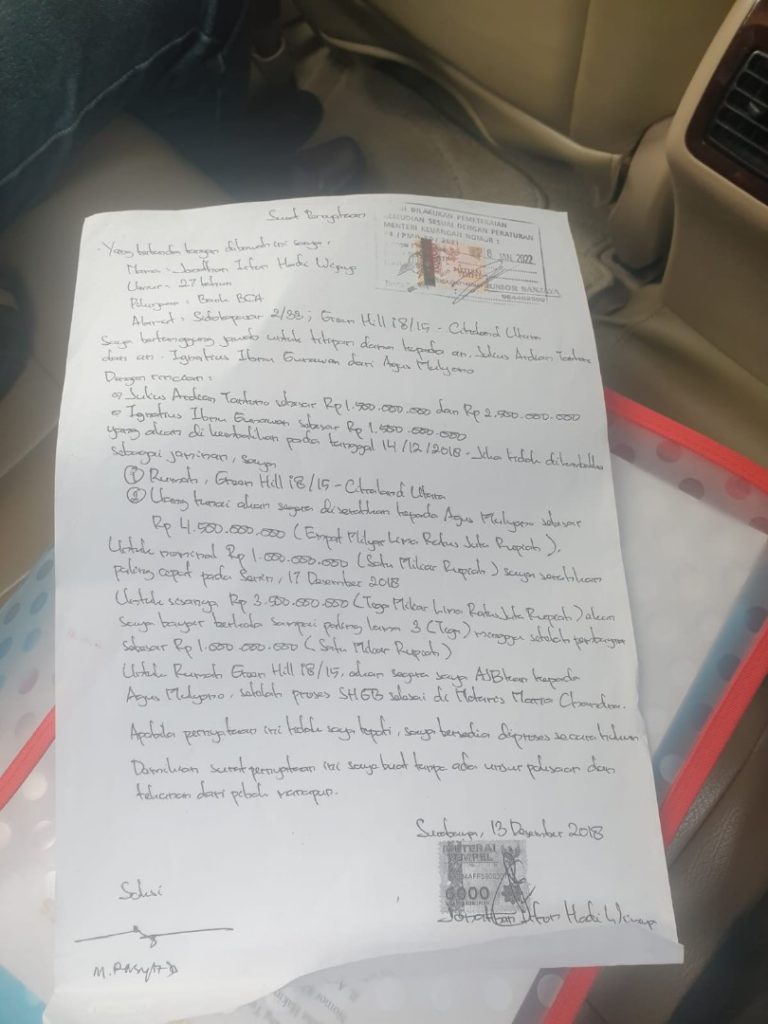 Surat Pernyataan
TELAH DILAKUKAN PEMETERAIAN
KEMUDIAN SESUAI DENGAN PERATURAN
MENTERI KEUANGAN NOMOR :
2021
JAN. 2022
Yang bertanda tangan dibawah ini saya,
Nama : Jonathan Irfon Hadi
Umur : 27 tahun
Pekerjaan : Bank BCA
Alamat : 2/33 ; Green Hill i8/15 - Citraland Utara
Saya bertanggung jawab untuk titipan dana kepada an. Julius Ardian
dan an. Ignatius Ibnu Gunawan dari Agus Mulyono
Dengan rincian :
Julius Ardian sebesar Rp 1.500.000.000 dan Rp 2.500.000.000
Ignatius Ibnu Gunawan sebesar Rp 1.500.000.000
yang akan di kembalikan pada tanggal 14/12/2018 - Jika tidak dikembalikan
sebagai jaminan, saya
① Rumah, Green Hill i8/15 - Citraland Utara
② Uang tunai akan segera diserahkan kepada Agus Mulyono sebesar
Rp 4.500.000.000 (Empat Milyar Lima Ratus Juta Rupiah).
Untuk nominal Rp 1.000.000.000 (Satu Miliar Rupiah) saya serahkan
paling cepat pada Senin, 17 Desember 2018
Untuk sisanya Rp 3.500.000.000 (Tiga Miliar Lima Ratus Juta Rupiah) akan
saya bayar berkala sampai paling lama 3 (Tiga) minggu setelah
sebesar Rp 1.000.000.000 (Satu Miliar Rupiah)
Untuk Rumah Green Hill i8/15, akan segera saya AJBkan kepada
Agus Mulyono, setelah proses SHGB selesai di Notaris Chandra.
Apabila pernyataan ini tidak saya tepati, saya bersedia diproses secara hukum
Demikian surat pernyataan ini saya buat tanpa ada unsur paksaan dan
tekanan dari pihak manapun.
Surabaya, 13 Desember 2018
METERAI
TEMPEL
6000
Saksi
Jonathan Irfon Hadi